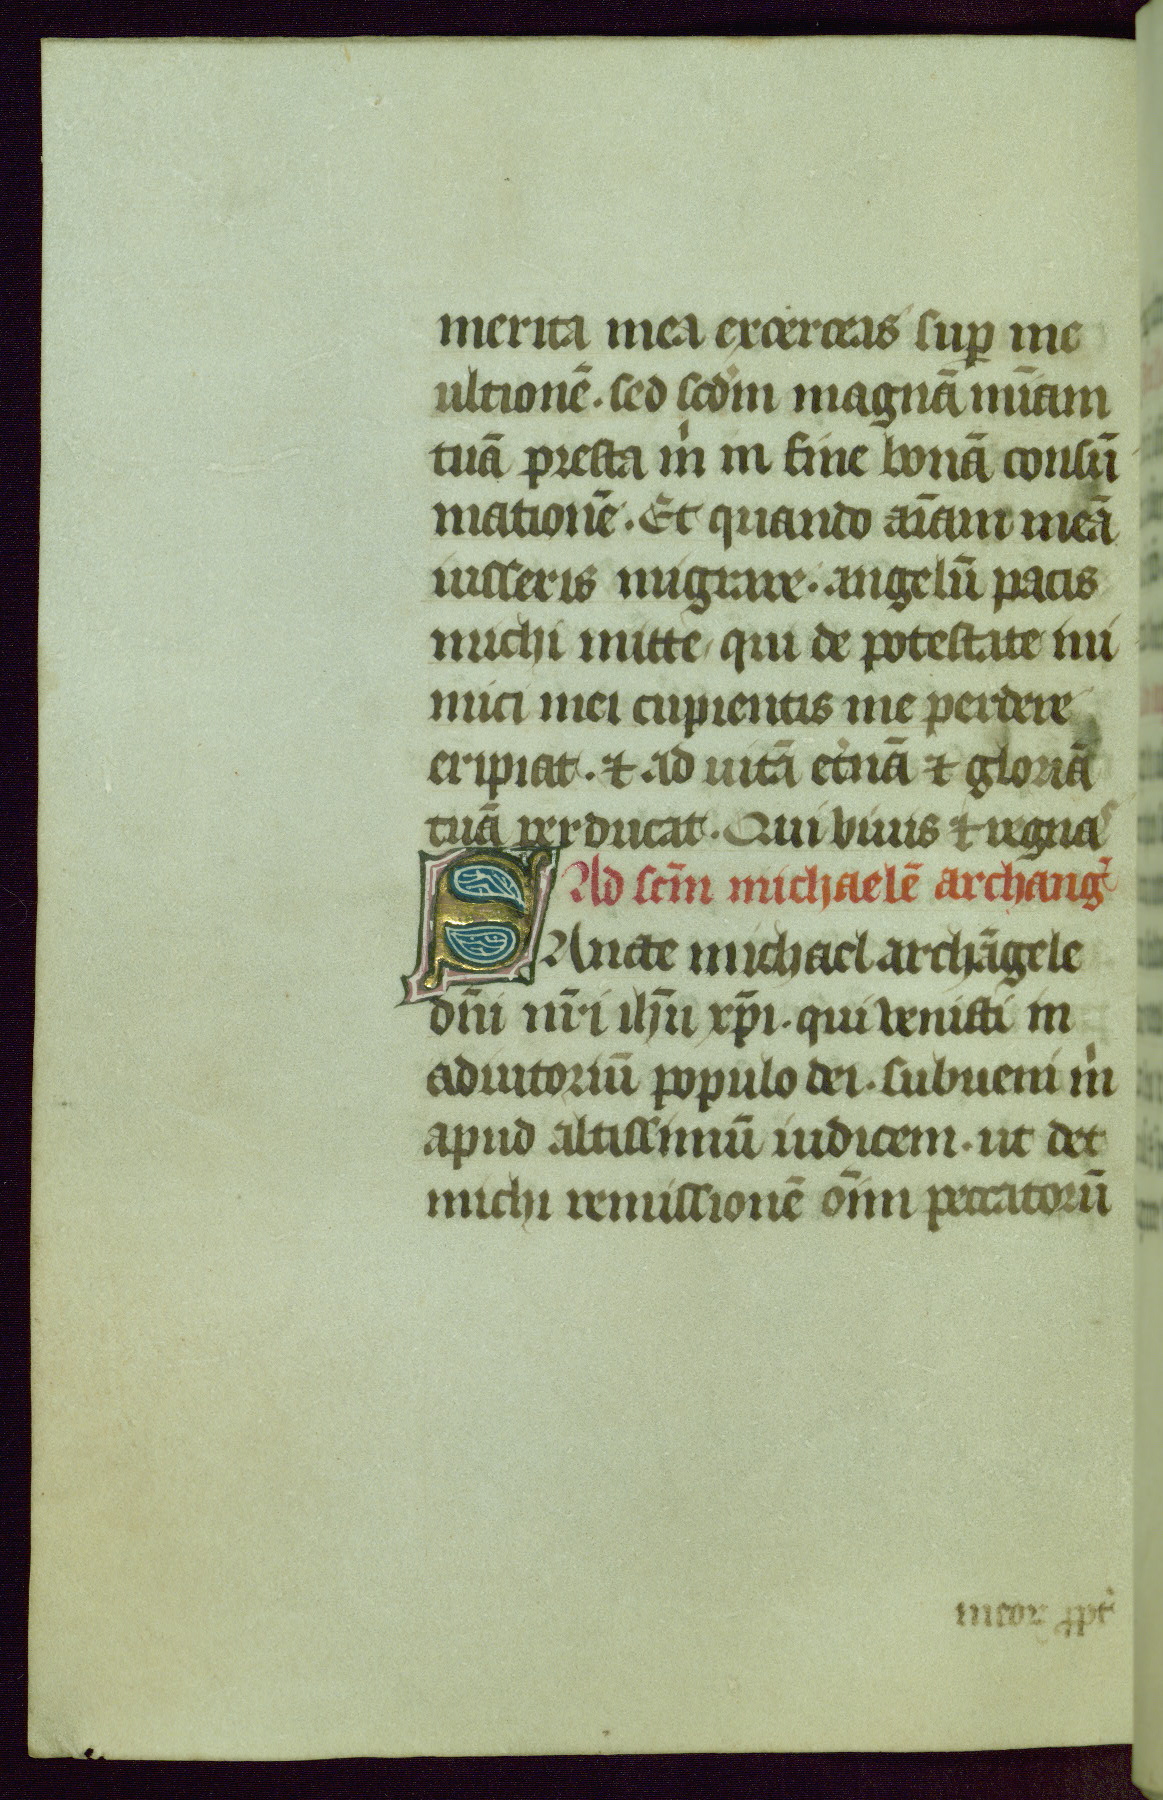 merita mea exerceas sup̱ me
ultionē. sed scďm magnā mīam
tuā presta m̍ in fine bonā consū
mationē. Et quando aīam meā
iusseris migrare. angelū pacis
michi mitte, qui de potestate ini
mici mei cupientis me perdere
eripiat. ⁊ ad uitā et̍nā ⁊ gloriā
tuā perducat. Qui viuis ⁊ regnas
Ad scm̄ michaelē archang̍
SAncte michael archāgele
dn̄i nr̄i ihū xp̄i. qui venisti in
adiutoriū populo dei. subueni m̍
apud altissimū iudicem. ut det
michi remissionē om̄i peccatorū
meoꝝ ꝓpt̍